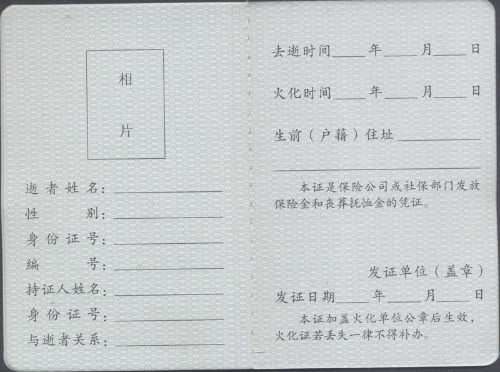 相
片
逝者姓名：
性 别：
身份证号：
编 号：
持证人姓名：
身份证号：
与逝者关系：
去逝时间____年____月____日
火化时间____年____月____日
生前（户籍）住址
本证是保险公司或社保部门发放
保险金和丧葬抚恤金的凭证。
发证单位（盖章）
发证日期____年____月____日
本证加盖火化单位公章后生效，
火化证若丢失一律不得补办。